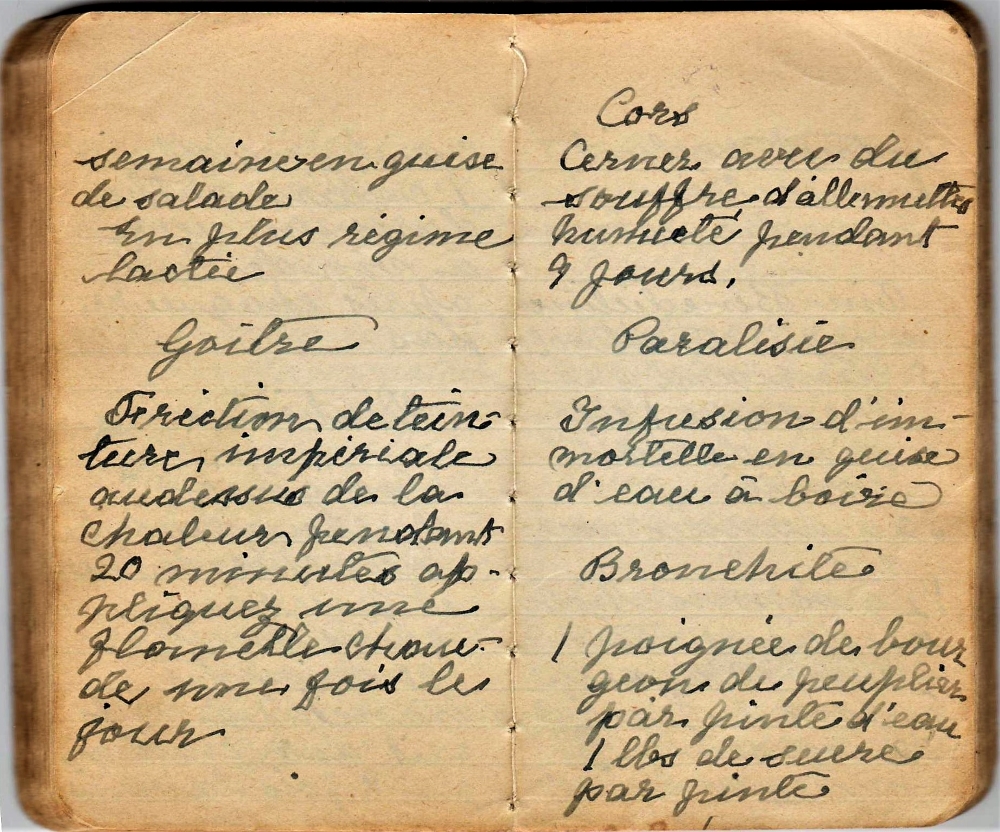 semaine en guise
de salade
En plus régime
lactée
Goitre
Friction de tein-
ture impériale
audessus de la
chaleur pendant
20 minutes ap-
pliquez une
flanelle chau-
de une fois le
jour
Cors
Cerner avec du
souffre d'allumettes
humecté pendant
9 jours.
Paralisie
Infusion d'im-
mortelle en guise
d'eau à boire
Bronchite
1 poignée de bour
geon de peuplier
par pinte d'eau
1 lbs de sucre
par pinte